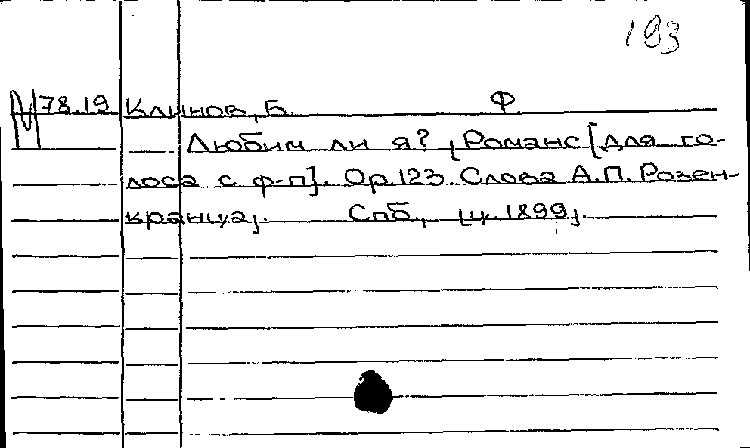 193
М78.19 Клинов, Б. Ф
Любим ли я? [Романс [для го-
лоса с ф-п]. Op.123. Слова А.П. Розен-
кранца]. Спб., [ц. 1899].